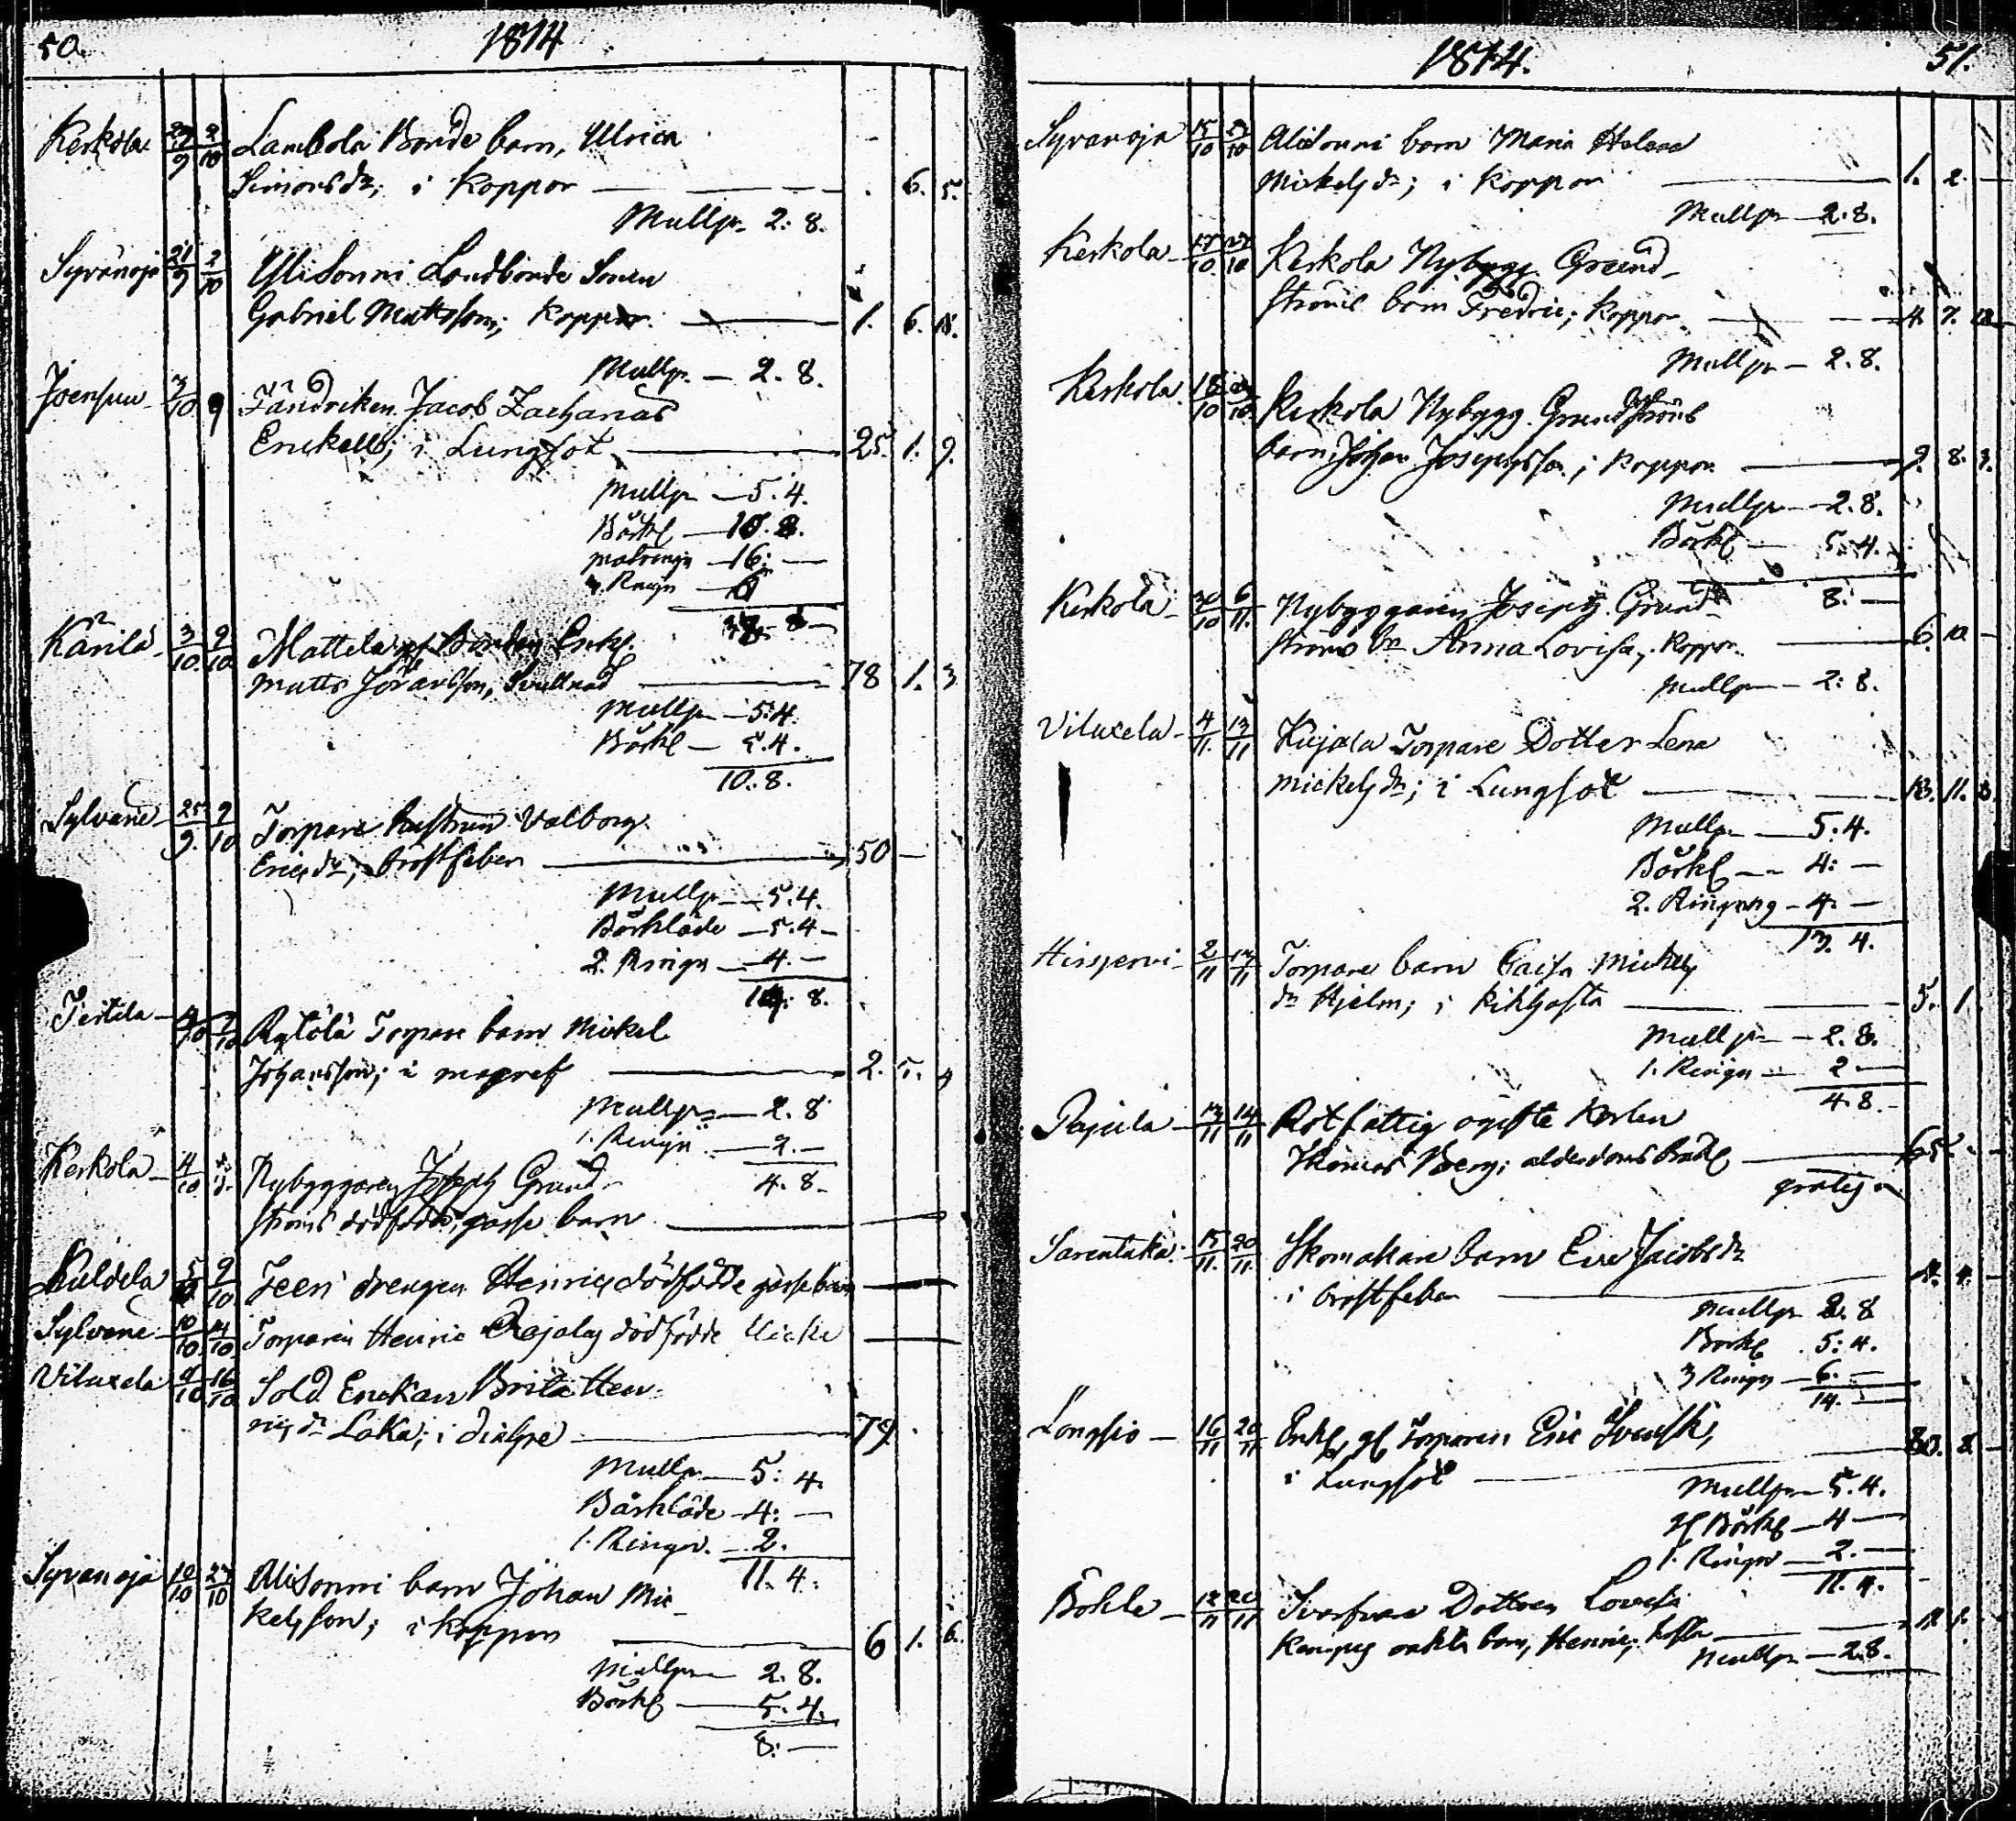 50. 1814
Keskola 9/10 Lambola Bonde barn, Ulrica
Simonsdr; i Koppor — . 6. 5.
Mullpn 2: 8.
Syvänoja 21/9 2/10 Ylisonni Landbonde Sonen
Gabriel Mattsson; Koppor. — 1. 6. 18.
Mullpn. — 2. 8.
Joensuu 3/10 9 Fändriken Jacob Zacharias
Enckell; i Lungsot — 25. 1. 9.
Mullpn — 5. 4.
Bårkl — 10. 8.
— 16: —
4. Ringn —
Kärilä 3/10 9/10 Mattila Enkl.
Matts Jöransson, Svullnad — 78 1. 3
Mullpn — 5: 4.
Bårkl — 5. 4.
10. 8.
Sylvänä 25/9. 9/10 Torpare hustrun Valborg
Ericsdr; bröstfeber — 50 —
Mullpn — 5. 4.
Bårkläde — 5. 4 —
2. Ringn — 4. —
8.
10 Torpare barn Mickel
Johansson; i — 2. 5. 4
Mullpn — 2. 8
1. Ringn — 2. —
4. 8 —
Keskola 4/10 Nybyggaren Joseph Grund-
ströms dödfödde gosse barn —
5 9/10 drengen Henrics dödfödde gosse barn —
Sylvänä 10/10 14/10 Torparen Henric dödfödde flicka —
Viluxela 9/10 16/10 Sold. Enckan Brita Hen-
ricsdr Laka; i — 79.
Mullpn — 5: 4.
Bårkläde — 4: —
1. Ringn. — 2.
11. 4.
Syvänoja 19/10 23/10 Ylisonni barn Johan Mic-
kelsson; i Koppor — 6 1. 6.
Mullpn — 2. 8.
Bårkl — 5. 4.
8: —
1814. 51.
Syvänoja 15/10 23/10 Ylisonni barn Maria Helena
Mickelsdr; i Koppor — 1. 2. —
Mullpn — 2. 8.
Keskola 17/10 23/10 Keskola Nybygg. Grund-
ströms barn Fredric; Koppor — 4. 7.
Mullpn — 2. 8.
Keskola. 18/10 23/10 Keskola Nybygg. Grundströms
barn Johan Josephsson; Koppor — 9. 8. 9.
Mullpn — 2. 8.
Bårkl — 5. 4.
8: —
Keskola 30/10 6/11. Nybyggaren Joseph Grund-
ströms bn Anna Lovisa; Koppor. — 6. 10. —
Mullpn — 2: 8.
Viluxela 4/11. 13/11 Kujala Torpare Dotter Lena
Mickelsdr; i Lungsot — 13. 11. 3.
Mullpn — 5. 4.
Bårkl — 4: —
2. Ringng — 4. —
13. 4.
Hirsjervi 2/11 13/11 Torpare barn Caisa Mickels
dr Hjelm; i Kikhosta — 5. 1
Mullpn — 2. 8.
1. Ringn — 2 —
4. 8. —
Pajula 13/11 14/11 Rotfattig ogifte Karlen
Thomas Berg; ålderdoms bräckl — 65. — —
gratis
Sarentaka 15/11. 20/11. Skomakare barn Eva Jacobsdr
i bröstfeber — 4. —
Mullpn 2. 8
Bårkl 5: 4.
3 Ringn — 6. —
14. —
16/11 20/11 Enkl. gl. Torparen Eric Svensk,
i Lungsot — 80. 8. —
Mullpn — 5. 4.
gl Bårkl — 4 —
1. Ringn — 2. —
11. 4.
12/11 20/11 Svarfvare Dottren Lovisa
oäkta barn, Henric; — 1.
Mullpn — 2. 8.